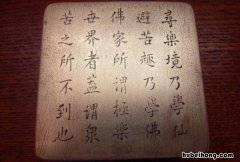 尋樂境乃學仙
避苦趣乃學佛
佛家所謂極樂
世界者蓋謂眾
苦之所不到也
hubeihong.com